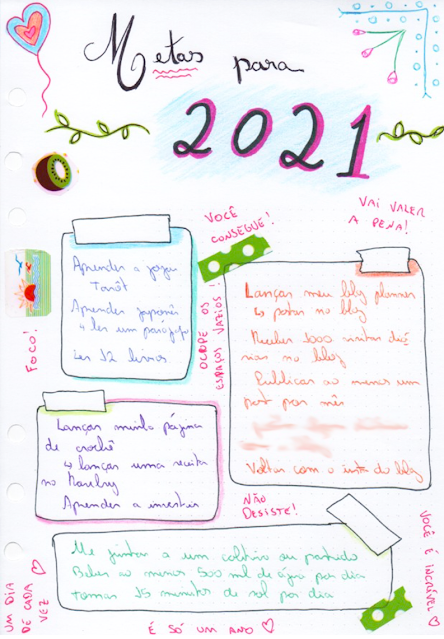 Metas para
2021
VOCÊ
CONSEGUE!
VAI VALER
A PENA!
Aprender a jogar
Tarôt
Aprender japonês
↳ ler um parágrafo
Ler 12 livros
FOCO!
OCUPE OS
ESPAÇOS VAZIOS!
Lançar meu blog planner
↳ postar no blog
Receber 1000 visitas diá
rias no blog
Publicar ao menos um
post por mês
Voltar com o insta do blog
Lançar minha página
de crochê
↳ lançar uma receita
no Ravelry
Aprender a investir
NÃO
DESISTE!
Me juntar a um coletivo ou partido
Beber ao menos 500 ml de água por dia
Tomar 15 minutos de sol por dia
UM DIA
DE CADA
VEZ
VOCÊ É INCRÍVEL
É SÓ UM ANO